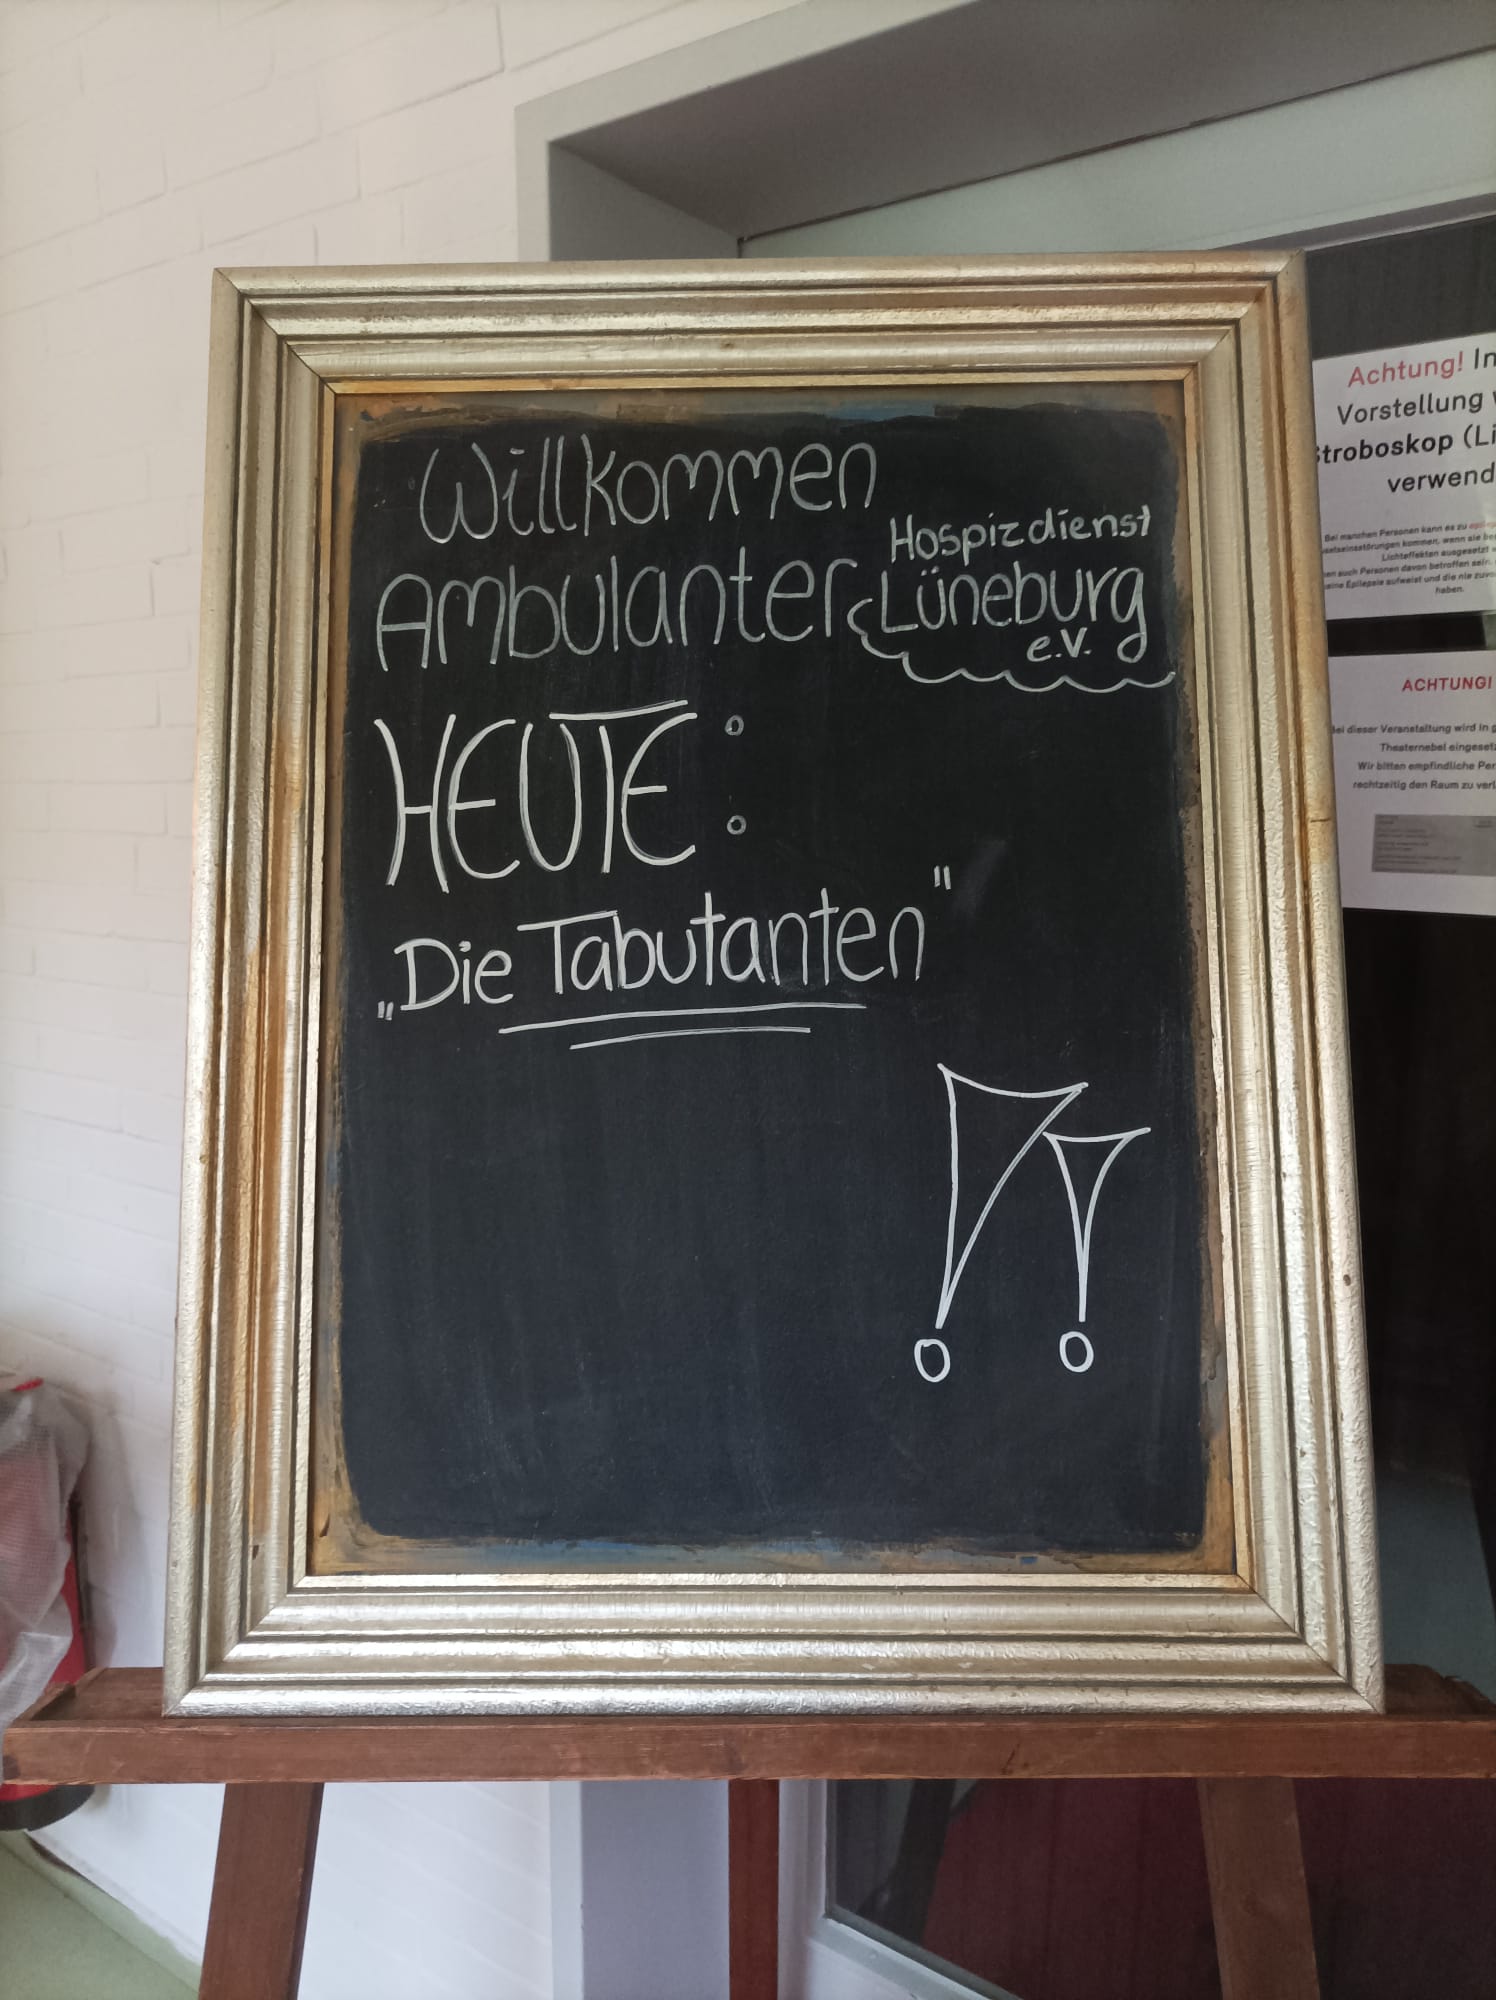 Willkommen
Ambulanter Hospizdienst
Lüneburg
e.V.
HEUTE:
„Die Tabutanten"
Achtung! In
Vorstellung
Stroboskop (Li
verwend
Bei manchen Personen kann es zu
kommen, wenn sie be
Lichteffekten ausgesetzt
auch Personen davon betroffen sein.
eine Epilepsie aufweist und die nie zuvo
haben.
ACHTUNG!
Bei dieser Veranstaltung wird in g
Theaternebel eingeset
Wir bitten empfindliche Per
rechtzeitig den Raum zu verl